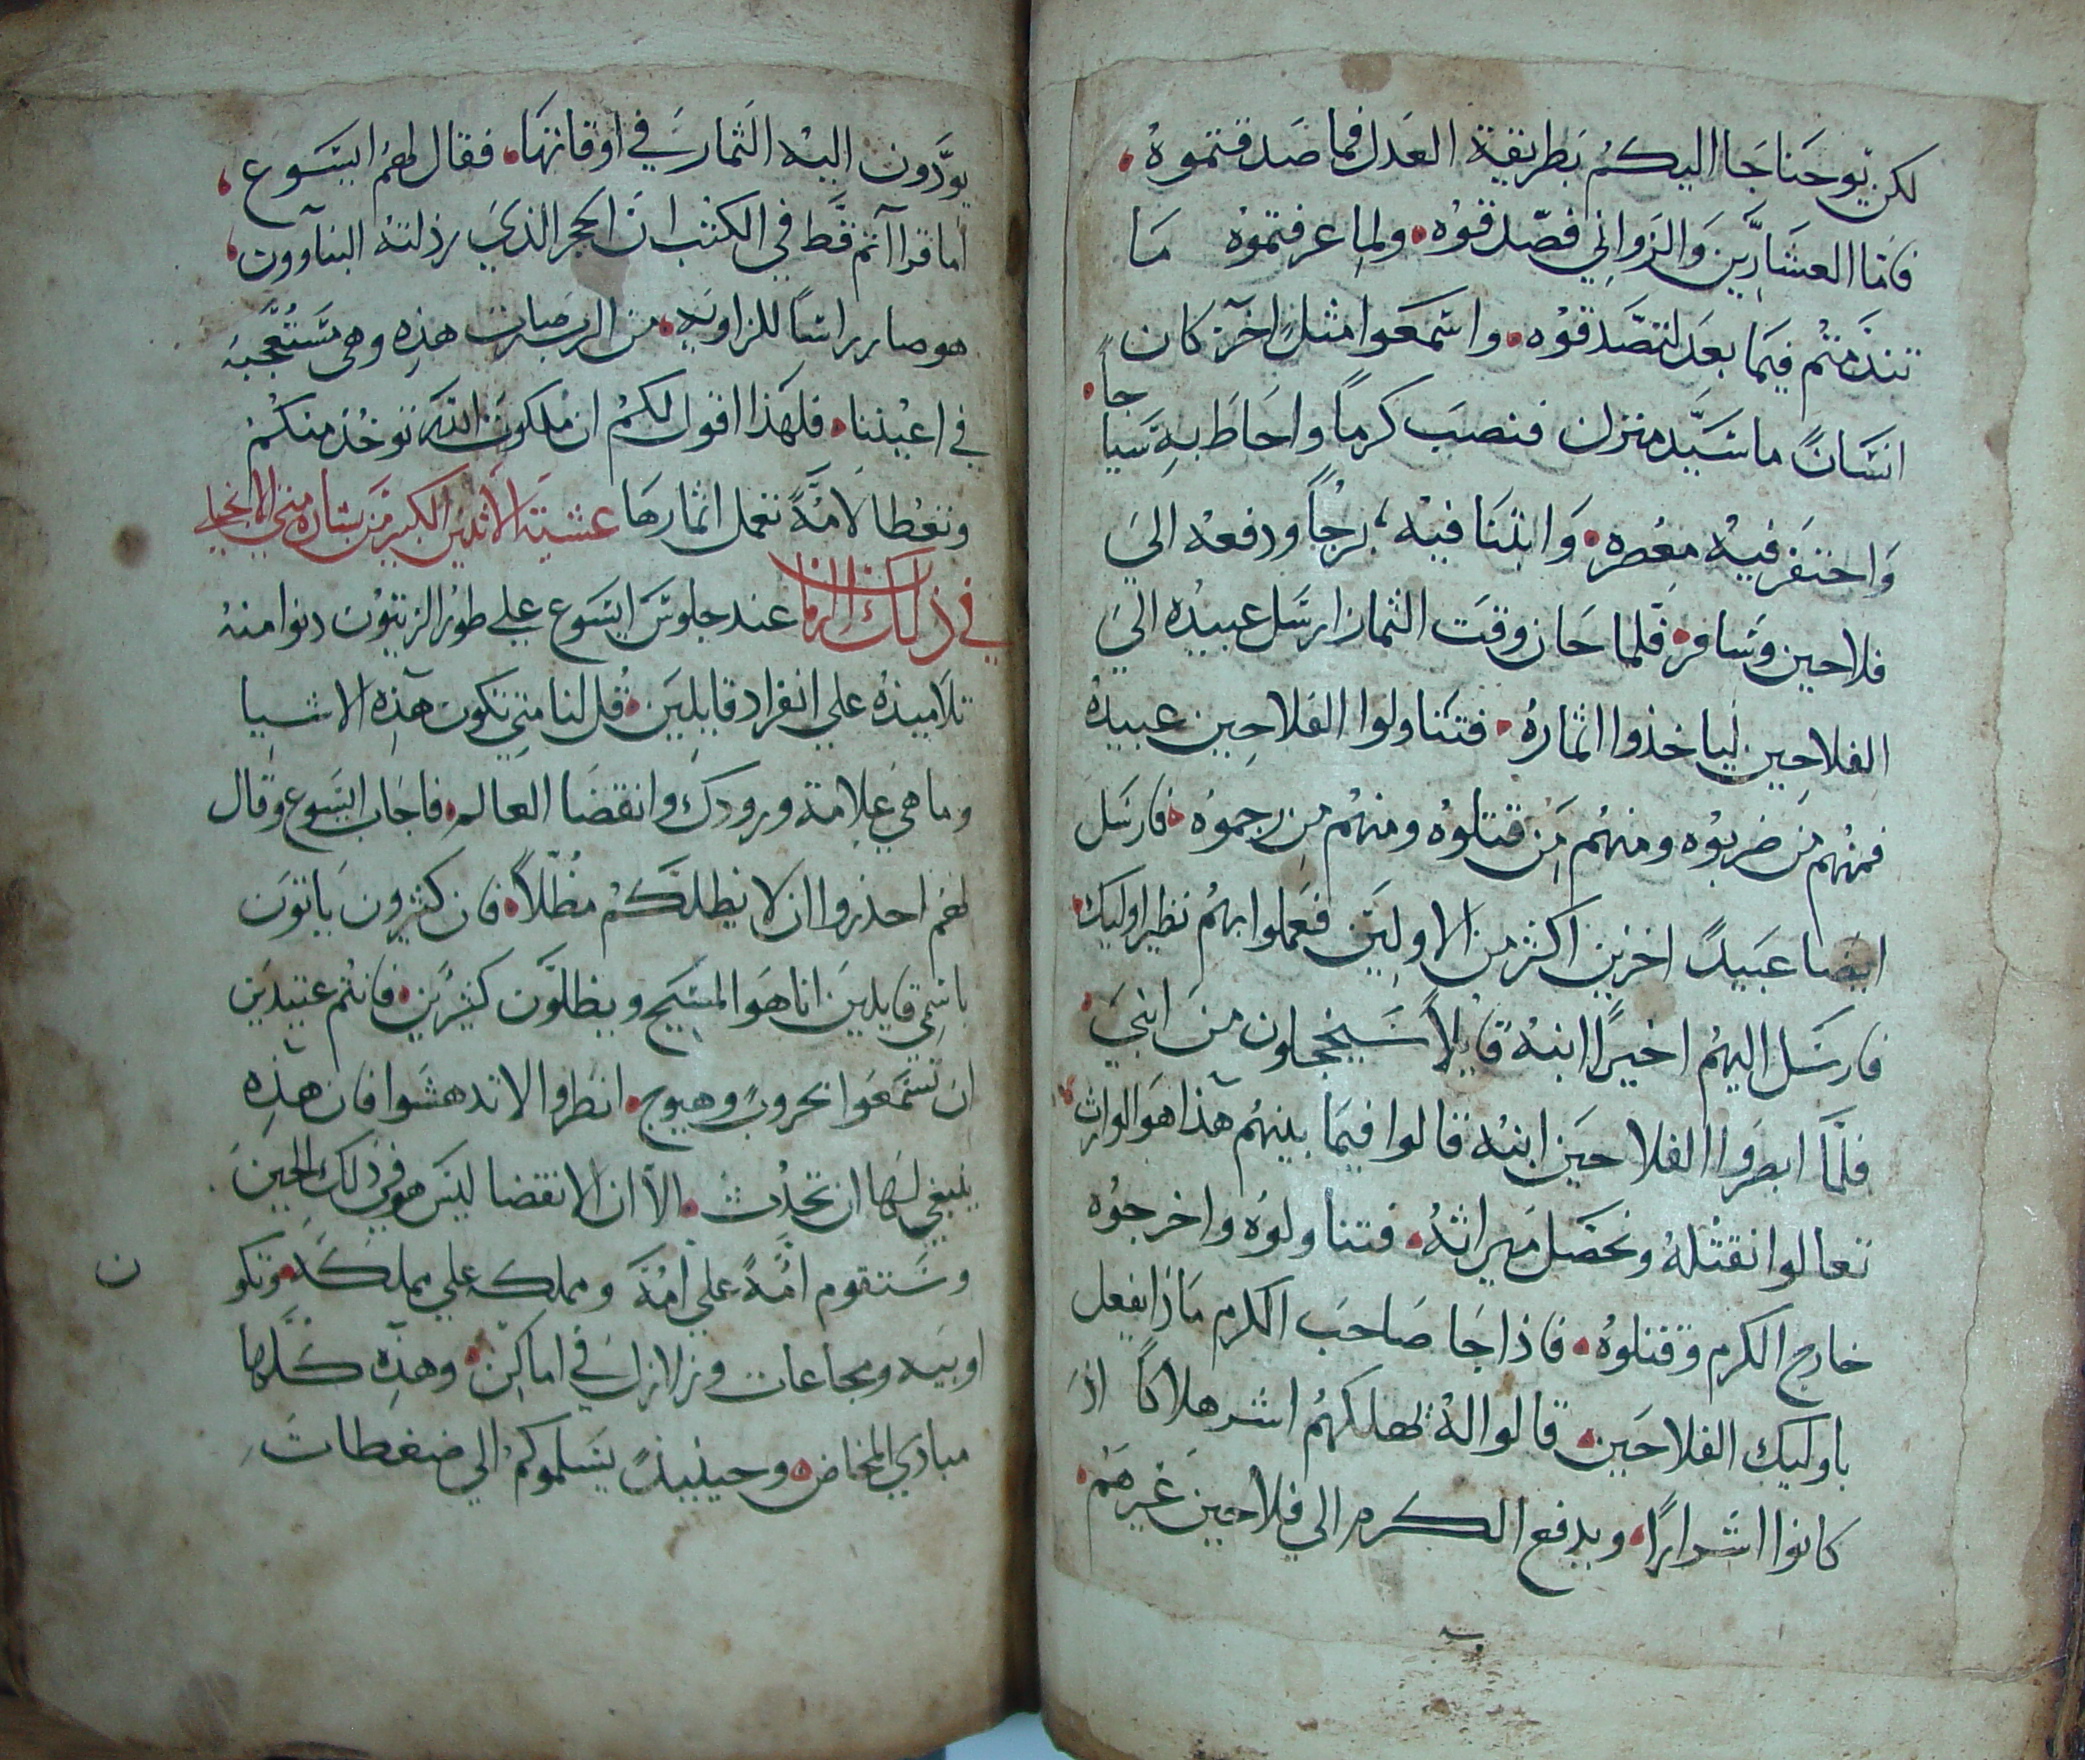 لكن يوحنا جا اليكم بطريقة العدل فما صدقتموه
فاما العشارين والزواني فصدقوه ولما عرفتموه ما
تندمتم فيما بعد لتصدقوه واسمعوا مثل اخر كان
انسانً ما سيد منزل فنصب كرماً واحاط به سيا
جاً
واحتفر فيه معصره وابتنا فيه برجاً ودفعه الي
فلاحين وسافر فلما حان وقت الثمار ارسل عبيده الي
الفلاحين لياخذوا اثماره فتناولوا الفلاحين عبيده
فمنهم من ضربوه ومنهم من قتلوه ومنهم من رجموه فارسل
ايضا عبيدً اخرين اكثر من الاولين فعملوا بهم نظير اوليك
فارسل اليهم اخيرًا ابنه قايلاً سيخجلون من ابني
فلما ابصروا الفلاحين ابنه قالوا فيما بينهم هذا هو الوارث
تعالوا نقتله ونحصل ميراثه فتناولوه واخرجوه
خارج الكرم وقتلوه فاذا جا صاحب الكرم ماذا يفعل
باوليك الفلاحين قالوا له يهلكهم اشر هلاكاً اذ
كانوا اشرارًا ويدفع الكرم الي فلاحين غيرهم
يودون اليه الثمار في اوقاتها فقال لهم ايسوع
اما قراآتم قط في الكتب ان الحجر الذي رذلته البناوون
هو صار راساً للزاويه من الرب صارت هذه وهي مستعجبه
في اعيننا فلهذا اقول لكم ان ملكوت الله توخذ منكم
وتعطا لامةً تعمل اثمارها عشية الاثنين الكبير من بشارة متي الانجيلي
في ذلك الزمان عند جلوس ايسوع علي طور الزيتون دنوا منه
تلاميذه علي انفراد قايلين قل لنا متي تكون هذه الاشيا
وما هي علامة ورودك وانقضا العالم فاجاب ايسوع وقال
لهم احذروا ان لا يظلكم مظلاً فان كثيرون ياتون
باسمي قايلين انا هو المسيح ويظلون كثيرين فانتم عتيدين
ان تسمعوا بحروبً وهيوج انظروا لا تدهشوا فان هذه
ينبغي لها ان تحدث الا ان الانقضا ليس هو في ذلك الحين
وستقوم امةً علي امة ومملكه علي مملكه وتكو
ن
اوبيه ومجاعات وزلازل في اماكن وهذه كلها
مبادي المخاض وحينيذً يسلموكم الي ضغطات